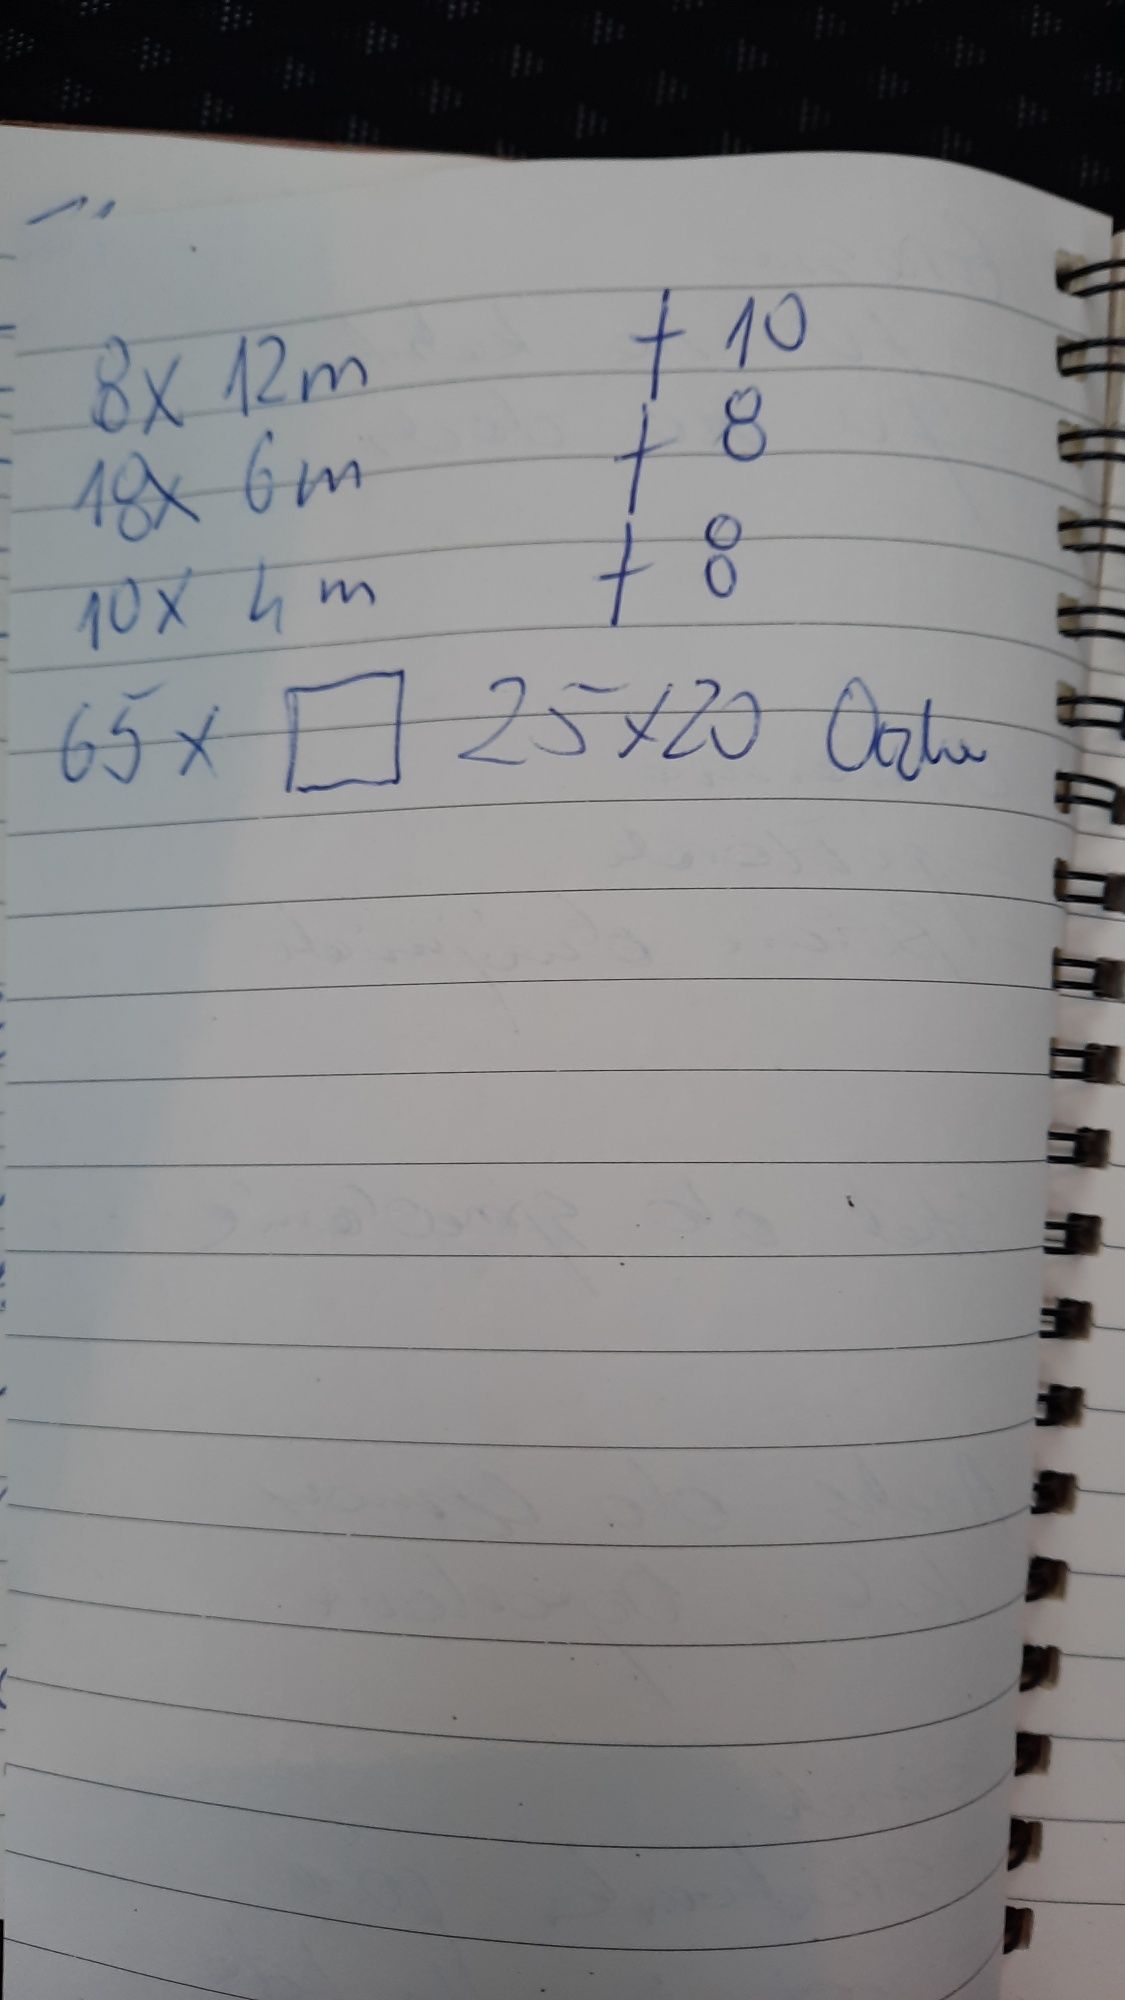 8x 12m ƒ 10
18x 6m ƒ 8
10x 4m ƒ 8
65x □ 25x20